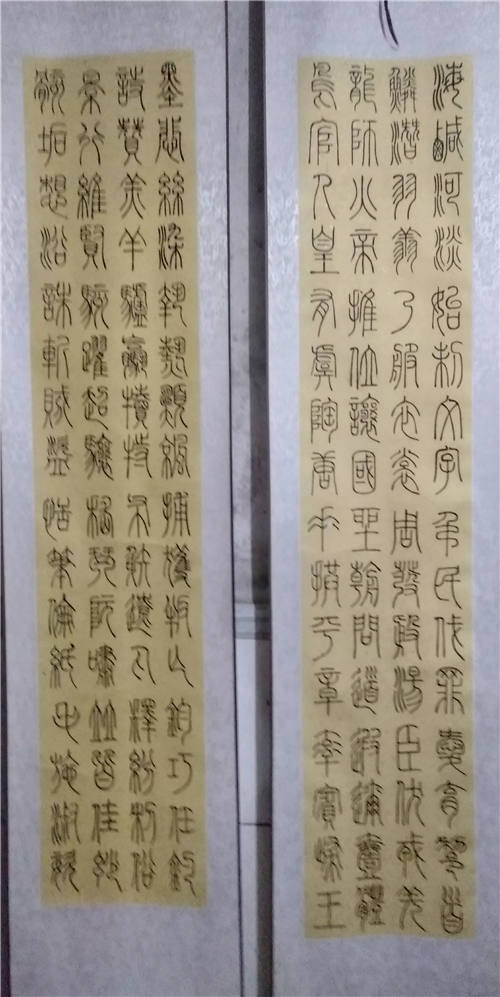 海鹹河淡始制文字弔民伐罪愛育黎首
鱗潛羽翔乃服衣裳周發殷湯臣伏戎羌
龍師火帝推位讓國坐朝問道遐邇壹體
鳥官人皇有虞陶唐垂拱平章率賓歸王
墨悲絲染執熱願涼捕獲叛亡鈞巧任釣
詩贊羔羊驢騾犢特布射遼丸釋紛利俗
景行維賢駭躍超驤嵇琴阮嘯並皆佳妙
骸垢想浴誅斬賊盜恬筆倫紙毛施淑姿